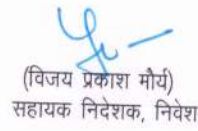 (विजय प्रकाश मौर्य)
सहायक निदेशक, निवेश